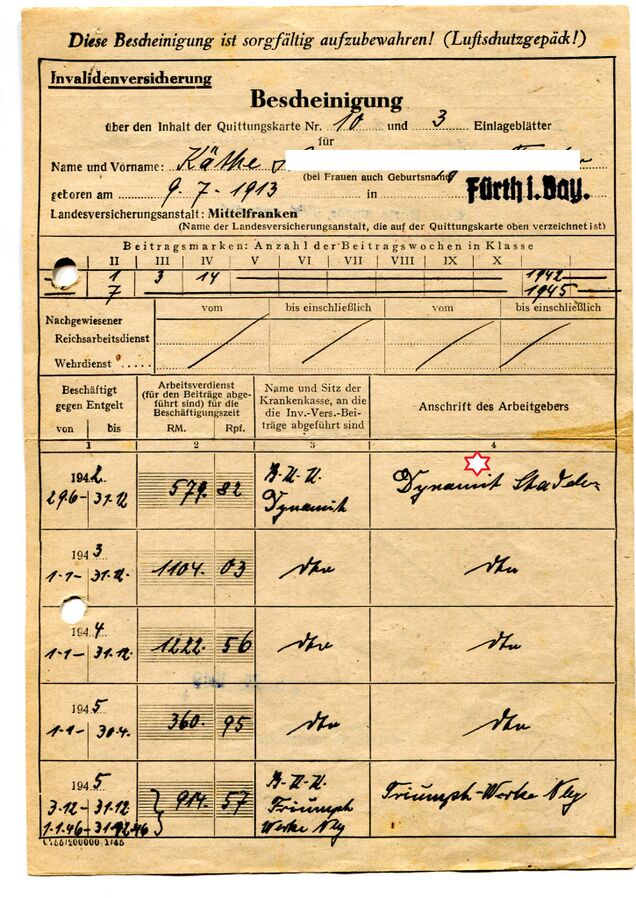 Diese Bescheinigung ist sorgfältig aufzubewahren! (Luftschutzgepäck!)
Invalidenversicherung
Bescheinigung
über den Inhalt der Quittungskarte Nr. 10 und 3 Einlageblätter
für
Name und Vorname: Käthe
(bei Frauen auch Geburtsname)
geboren am 9.7-1913 in Fürth i. Bay.
Landesversicherungsanstalt: Mittelfranken
(Name der Landesversicherungsanstalt, die auf der Quittungskarte oben verzeichnet ist)
Beitragsmarken: Anzahl der Beitragswochen in Klasse
II III IV V VI VII VIII IX X
1 3 14 1942
7 1945
vom bis einschließlich vom bis einschließlich
Nachgewiesener
Reichsarbeitsdienst
Wehrdienst .....
Beschäftigt gegen Entgelt
von bis
Arbeitsverdienst (für den Beiträge abgeführt sind) für die Beschäftigungszeit
RM. Rpf.
Name und Sitz der Krankenkasse, an die die Inv.-Vers.-Beiträge abgeführt sind
Anschrift des Arbeitgebers
1 2 3 4
1942 29.6- 31.12 579. 82 Dynamit Dynamit
1943 1-1- 31.12. 1104. 03 dto dto
1944 1-1- 31.12. 1222. 56 dto dto
1945 1-1- 30.4. 360. 95 dto dto
1945 3.12- 31.12. 914. 57 Triumph Triumph-Werke Nbg
1.1.46- Werke Nbg